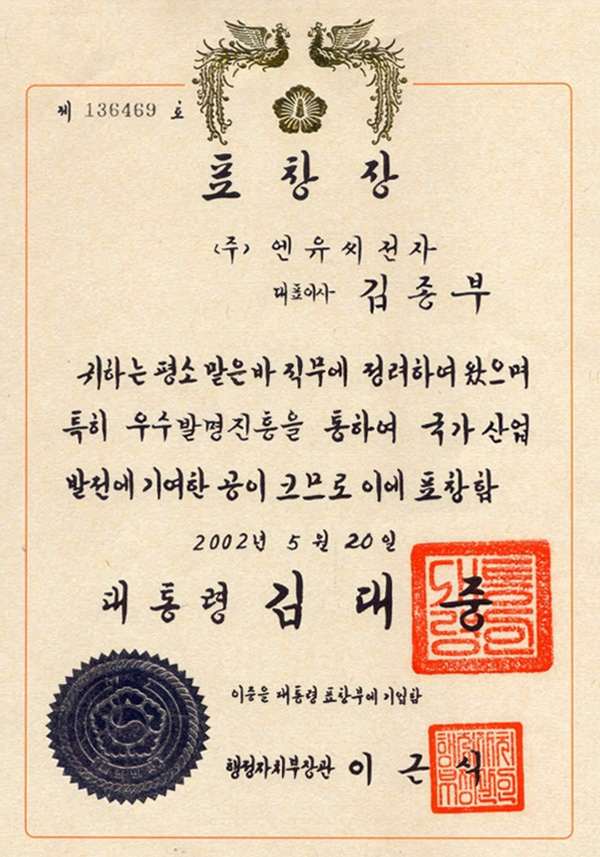 제 136469 호
표창장
(주) 엔유씨전자
대표이사 김종부
귀하는 평소 맡은바 직무에 정려하여 왔으며
특히 우수발명진흥을 통하여 국가 산업
발전에 기여한 공이 크므로 이에 표창함
2002년 5월 20일
대통령 김대중
이증을 대통령 표창부에 기입함
행정자치부장관 이근식